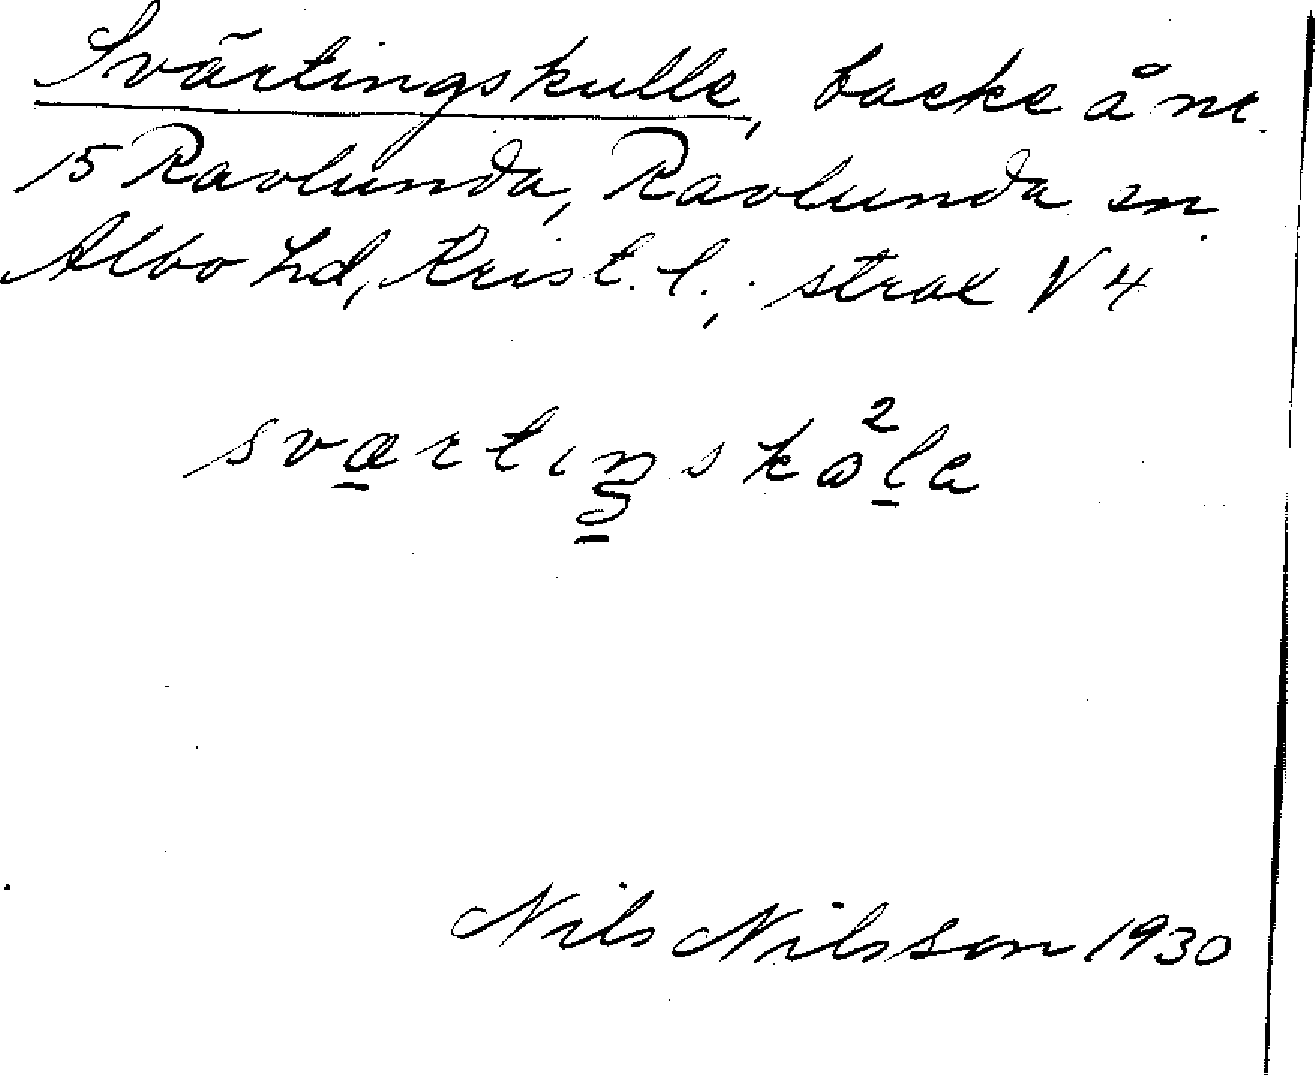 Svärtingskulle, backe å nr.
15 Ravlunda, Ravlunda sn
Albo hd, Krist. l., strax V 4
Nils Nilsson 1930